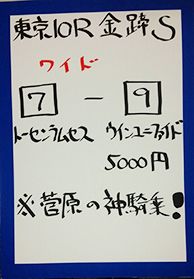 東京10R 金蹄S
ワイド
7 - 9
トーセンラムセス ウインユニファイド
5000円
※菅原の神騎乗!